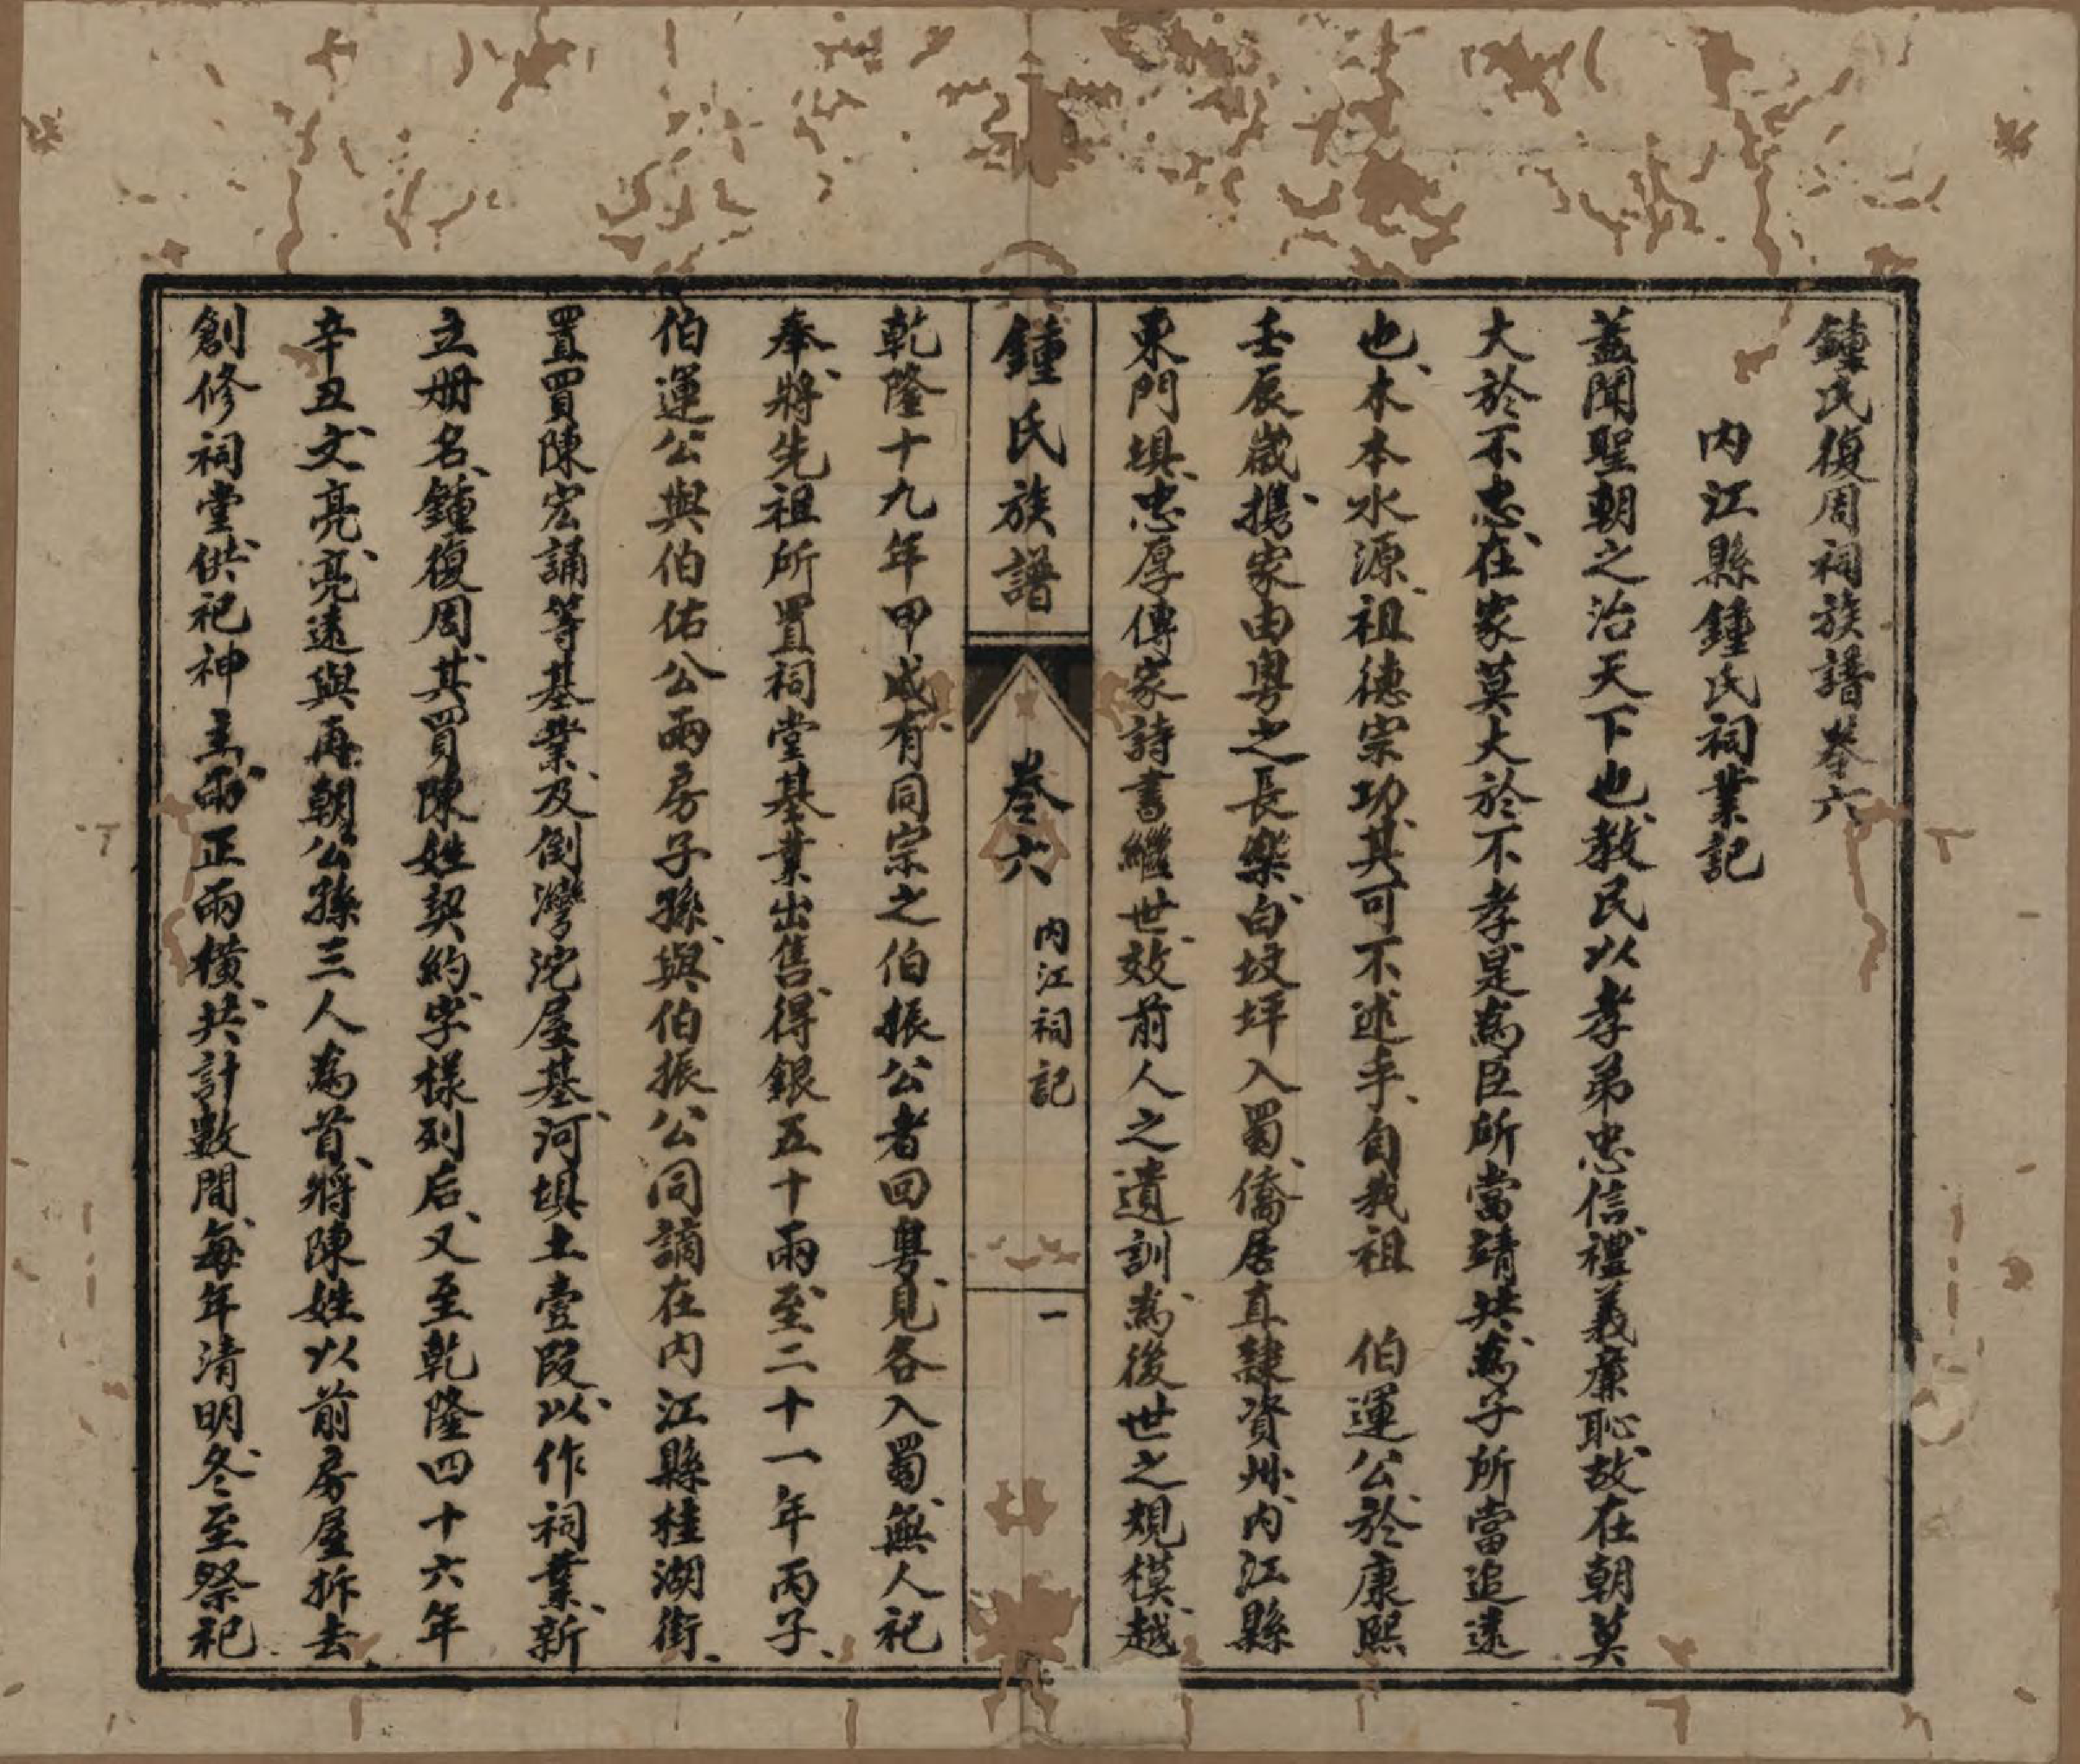 鍾氏復周祠族譜卷六
內江縣鍾氏祠業記
蓋聞聖朝之治天下也、教民以孝弟忠信禮義廉恥、故在朝莫
大於不忠、在家莫大於不孝、是為臣所當靖共、為子所當追遠
也、木本水源、祖德宗功、其可不述乎、自我祖　伯運公、於康熙
壬辰歲、携家由粵之長樂、白坟坪入蜀、僑居直隸資州、內江縣
東門埧、忠厚傳家、詩書繼世、效前人之遺訓、為後世之規模、越
鍾氏族譜　卷六　內江祠記　一
乾隆十九年甲戌、有同宗之伯振公者回粵、見各入蜀、無人祀
奉、將先祖所置祠堂基業出售、得銀五十兩、至二十一年丙子、
伯運公與伯佑公兩房子孫、與伯振公同謫在內江縣桂湖街、
置買陳宏誦等基業、及倒灣沱屋基、河埧土壹段、以作祠業、新
立册名、鍾復周、其買陳姓契約、字樣列后、又至乾隆四十六年
辛丑、文亮、亮遠與再朝公孫三人為首、將陳姓以前房屋拆去
創修祠堂、供祀神主、兩正兩橫、共計數間、每年清明、冬至祭祀